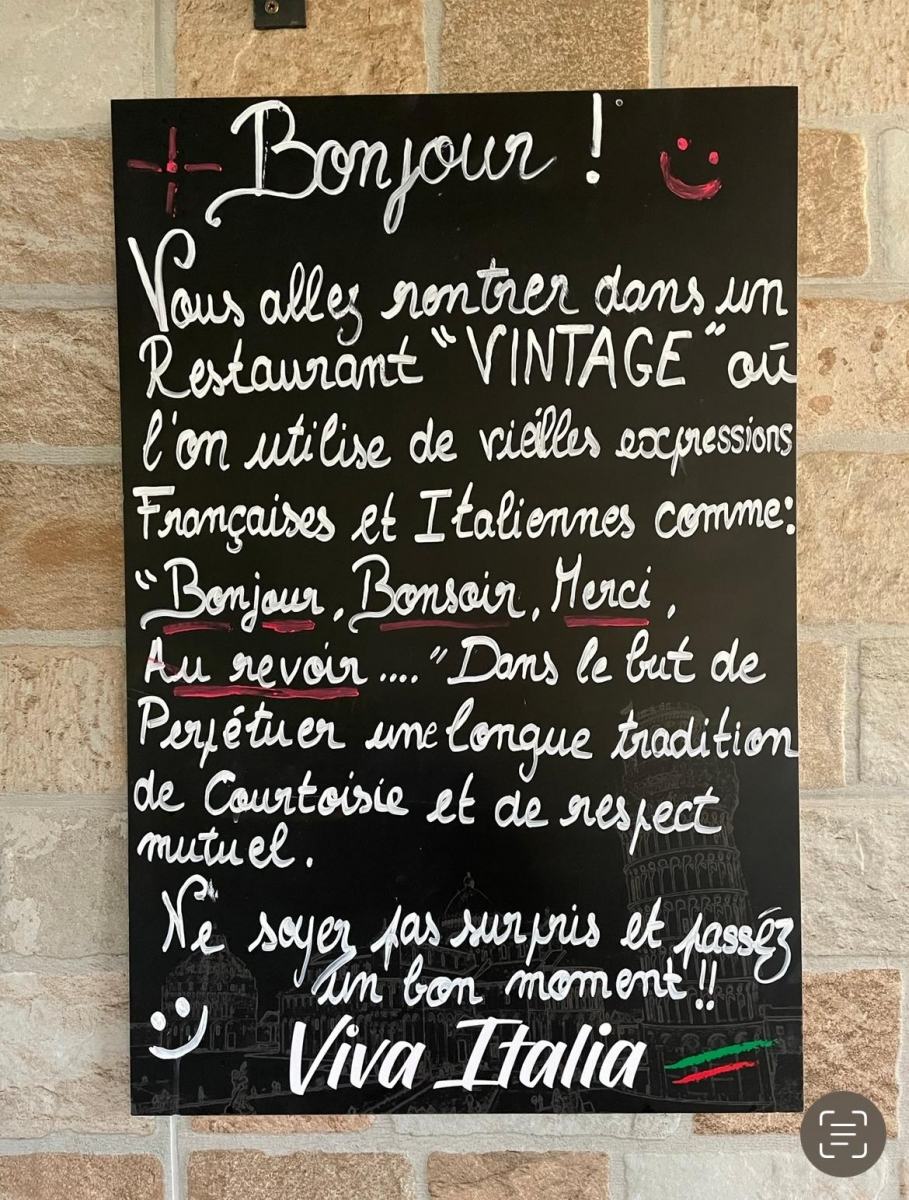 Bonjour !
Vous allez rentrer dans un
Restaurant "VINTAGE" où
l'on utilise de vieilles expressions
Françaises et Italiennes comme:
"Bonjour, Bonsoir, Merci,
Au revoir...." Dans le but de
Perpétuer une longue tradition
de Courtoisie et de respect
mutuel.
Ne soyez pas surpris et passéz
un bon moment !!
Viva Italia